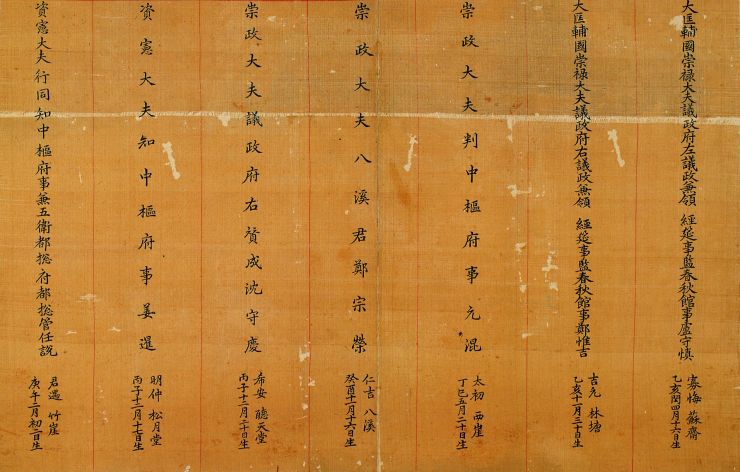 大匡輔國崇祿大夫議政府左議政兼領 經筵事監春秋館事盧守愼
寡悔 蘇齋
乙亥閏四月十六日生
大匡輔國崇祿大夫議政府右議政兼領 經筵事監春秋館事鄭惟吉
吉元 林塘
乙亥十一月三十日生
崇政大夫判中樞府事元混
太初 西崖
丁巳五月二十日生
崇政大夫八溪君鄭宗榮
仁吉 八溪
癸酉十一月十六日生
崇政大夫議政府右贊成沈守慶
希安 聽天堂
丙子十二月二十日生
資憲大夫知中樞府事姜暹
明仲 松月堂
丙子十二月十七日生
資憲大夫行同知中樞府事兼五衛都摠府都摠管任說
君遇 竹崖
庚午二月初二日生